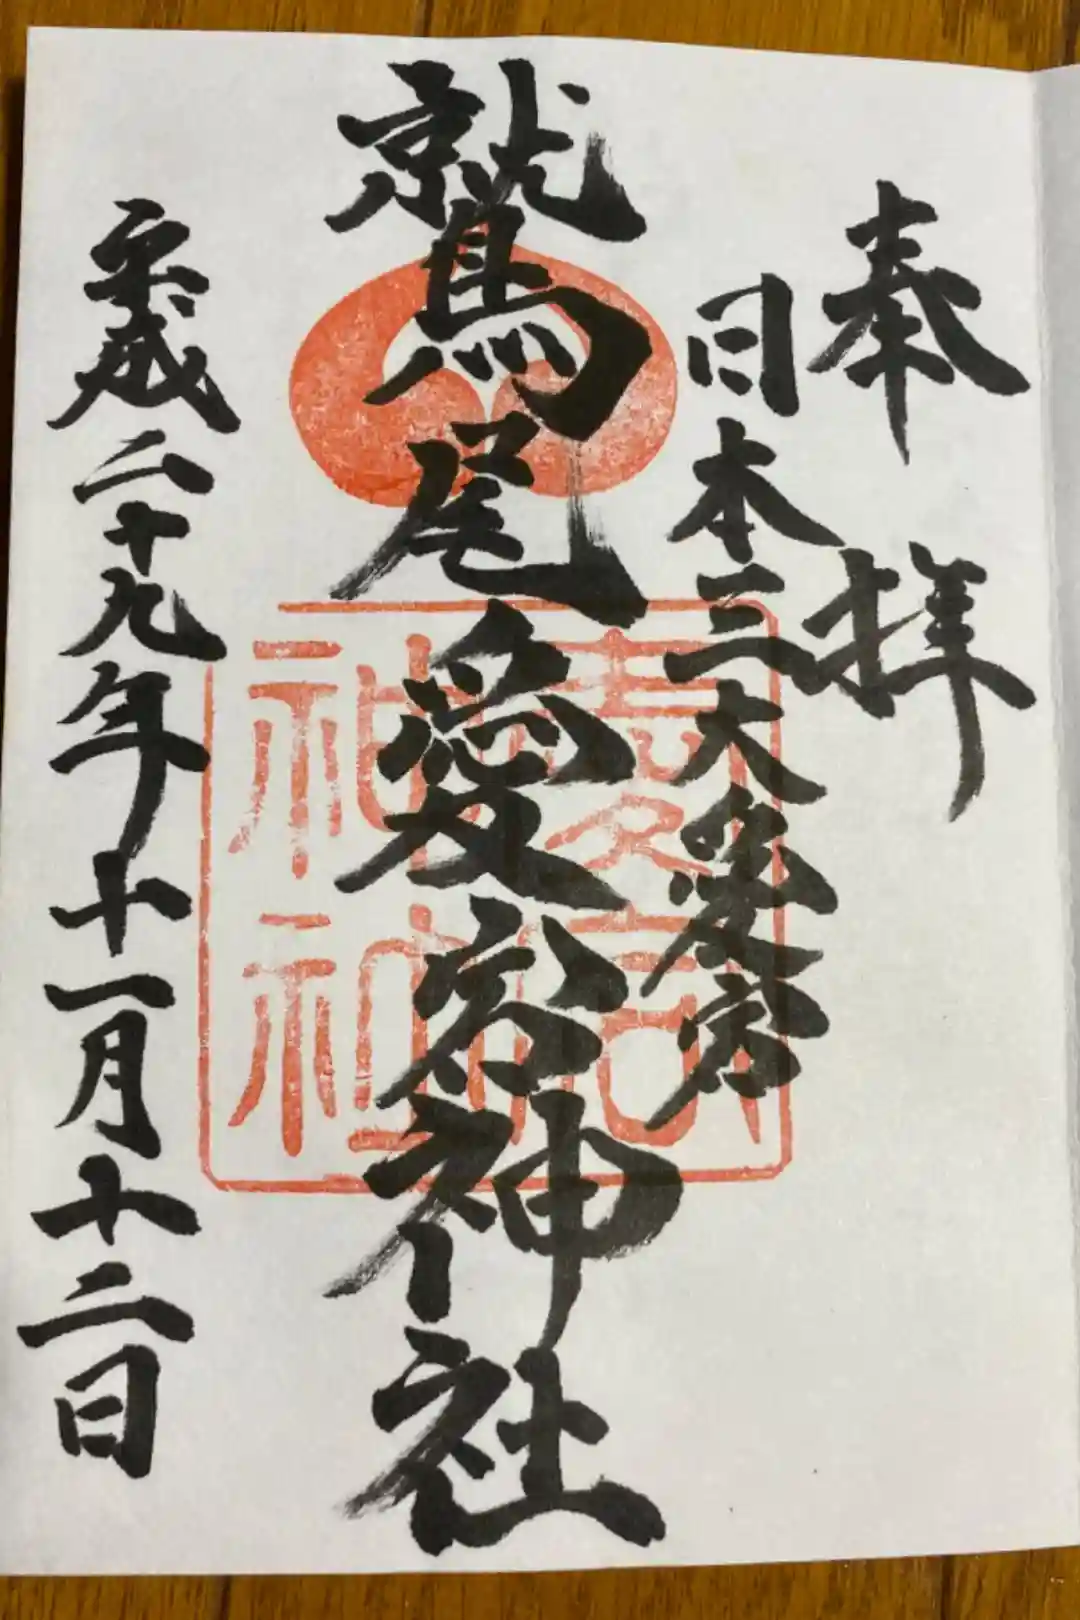 奉拝
日本三大愛宕
鷲尾愛宕神社
平成二十九年十一月十二日
愛宕
神社